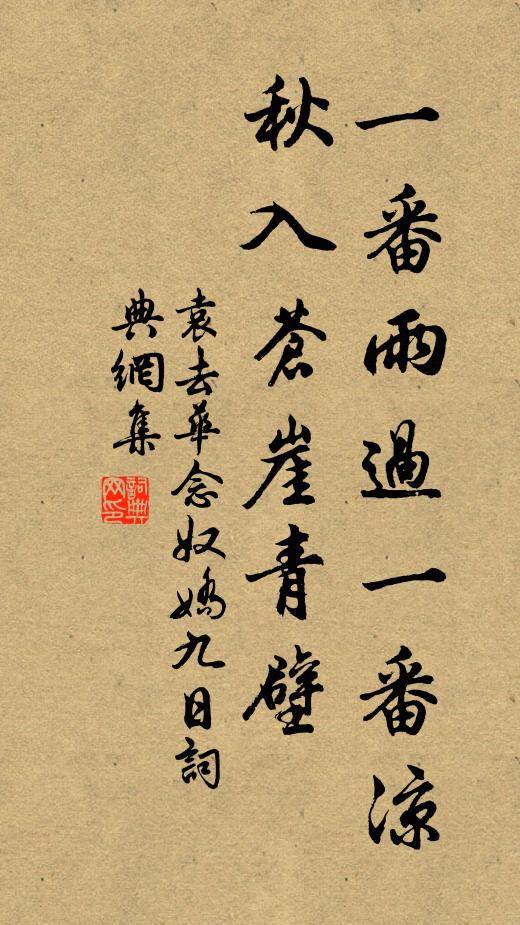 一番雨過一番涼
秋入蒼崖青壁
袁去華念奴嬌九日詞
典網集
詞典网印